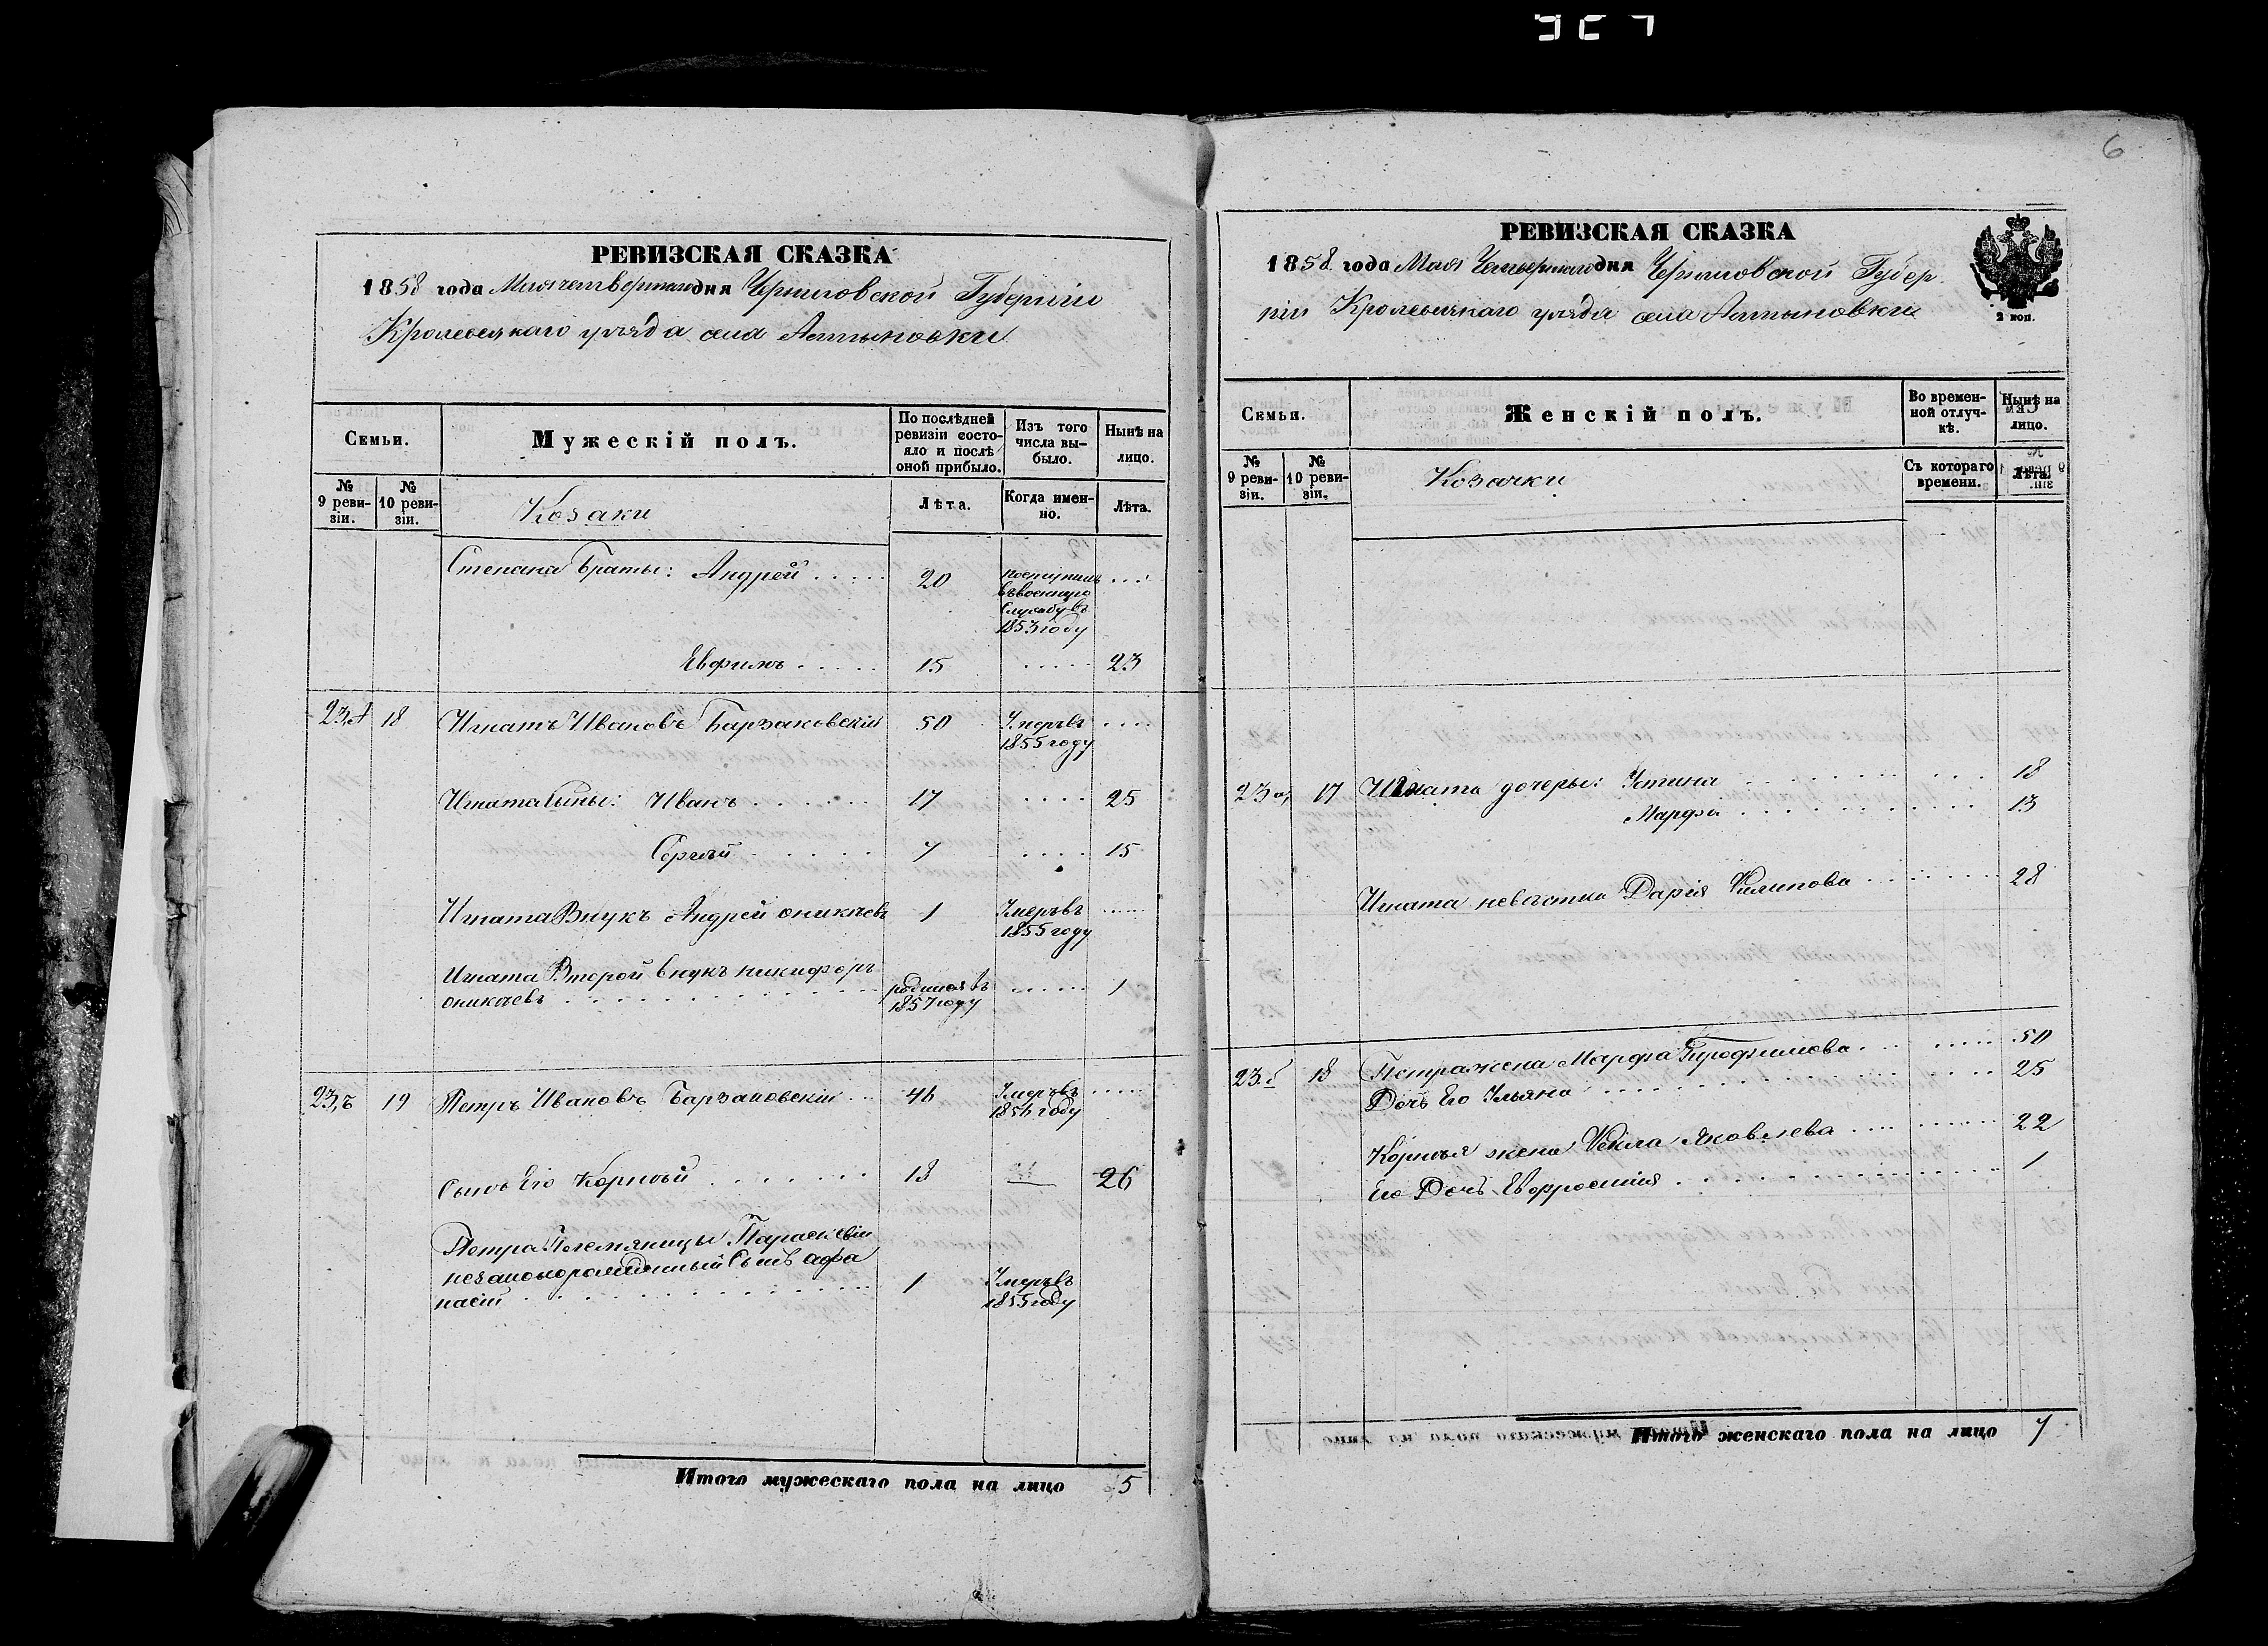 6
РЕВИЗСКАЯ СКАЗКА
1858 года Мая четвертаго дня Черниговской Губерніи
Кролевецкаго уѣзда села Алтыновки
Семьи.
Мужескій полъ.
По послѣдней ревизіи состояло и послѣ оной прибыло.
Изъ того числа выбыло.
Нынѣ на лицо.
№ 9 ревизіи.
№ 10 ревизіи.
Козаки
Лѣта.
Когда именно.
Лѣта.
Степана Браты: Андрей 20 поступилъ въ военную службу въ 1853 году
Евфимъ 15 23
23,А 18 Игнатъ Ивановъ Барзаковскій 50 Умеръ въ 1855 году
Игната Сыны: Иванъ 17 25
Сергѣй 7 15
Игната Внукъ Андрей оникѣевъ 1 Умеръ въ 1855 году
Игната Второй внукъ никифоръ
оникѣевъ родился въ 1857 году 1
23,б 19 Петръ Ивановъ Барзаковскій 46 Умеръ въ 1856 году
Сынъ Его Корнѣй 18 26
Петра Племяницы Параскевіи
незаконорожденный Сынъ афа
насій 1 Умеръ въ 1855 году
Итого мужескаго пола на лицо 5
РЕВИЗСКАЯ СКАЗКА
1858 года Мая Четвертаго дня Черниговской Губер
ніи Кролевецкаго уѣзда села Алтыновки
2 коп.
Семьи.
Женскій полъ.
Во временной отлучкѣ.
Нынѣ на лицо.
№ 9 ревизіи.
№ 10 ревизіи.
Козачки
Съ котораго времени.
Лѣта.
23 а, 17 Игната дочеры: Устина 18
Марфа 13
Игната невѣстка Дарія Филипова 28
23.б 18 Петра жена Марфа Трофимова 50
Дочь Его Ульяна 25
Корнѣя жена Фекла Яковлева 22
Его Дочь Евфросинія 1
Итого женскаго пола на лицо 7